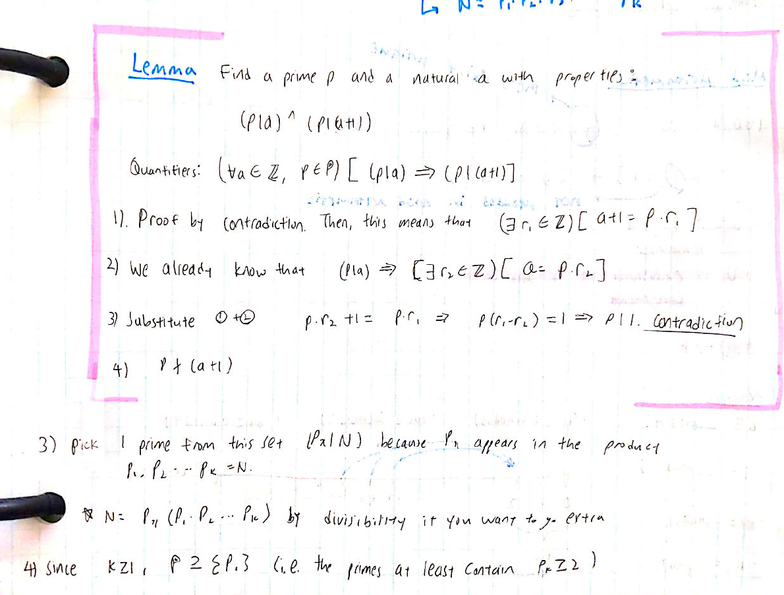 ↳ N = P₁·P₂·P₃
Lemma Find a prime p and a natural a with properties:
(p|a) ^ (p|(a+1))
Quantifiers: (∀a ∈ ℤ, p ∈ ℙ) [ (p|a) ⇒ (p|(a+1)]
1). Proof by contradiction. Then, this means that (∃ r₁ ∈ ℤ) [ a+1 = p·r₁ ]
2) We already know that (p|a) ⇒ [∃ r₂ ∈ ℤ) [ a = p·r₂]
3) Substitute ① + ② p·r₂ + 1 = p·r₁ ⇒ p(r₁-r₂) = 1 ⇒ p|1. contradiction
4) p ∤ (a+1)
3) pick 1 prime from this set (Pₙ|N) because Pₙ appears in the product
P₁·P₂ ··· Pₖ = N.
N = Pₙ (P₁·P₂ ··· Pₖ) by divisibility if you want to go extra
4) since k≥1, ℙ ⊇ {P₁} (i.e. the primes at least contain Pₖ ≥ 2)